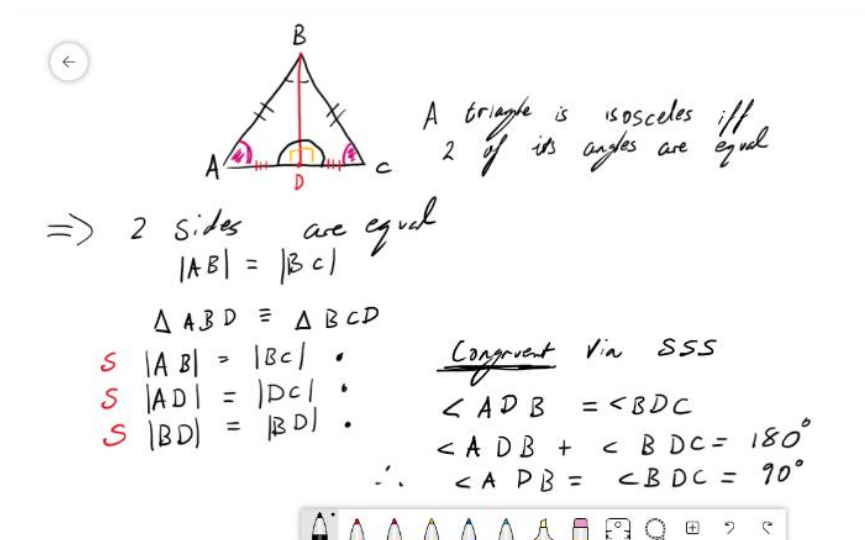 B
A
C
D
A triangle is isosceles iff
2 of its angles are equal
=> 2 sides are equal
|AB| = |BC|
Δ ABD ≡ Δ BCD
S |AB| = |BC| •
S |AD| = |DC| •
S |BD| = |BD| •
Congruent via SSS
< ADB = < BDC
< ADB + < BDC = 180°
∴ < ADB = < BDC = 90°